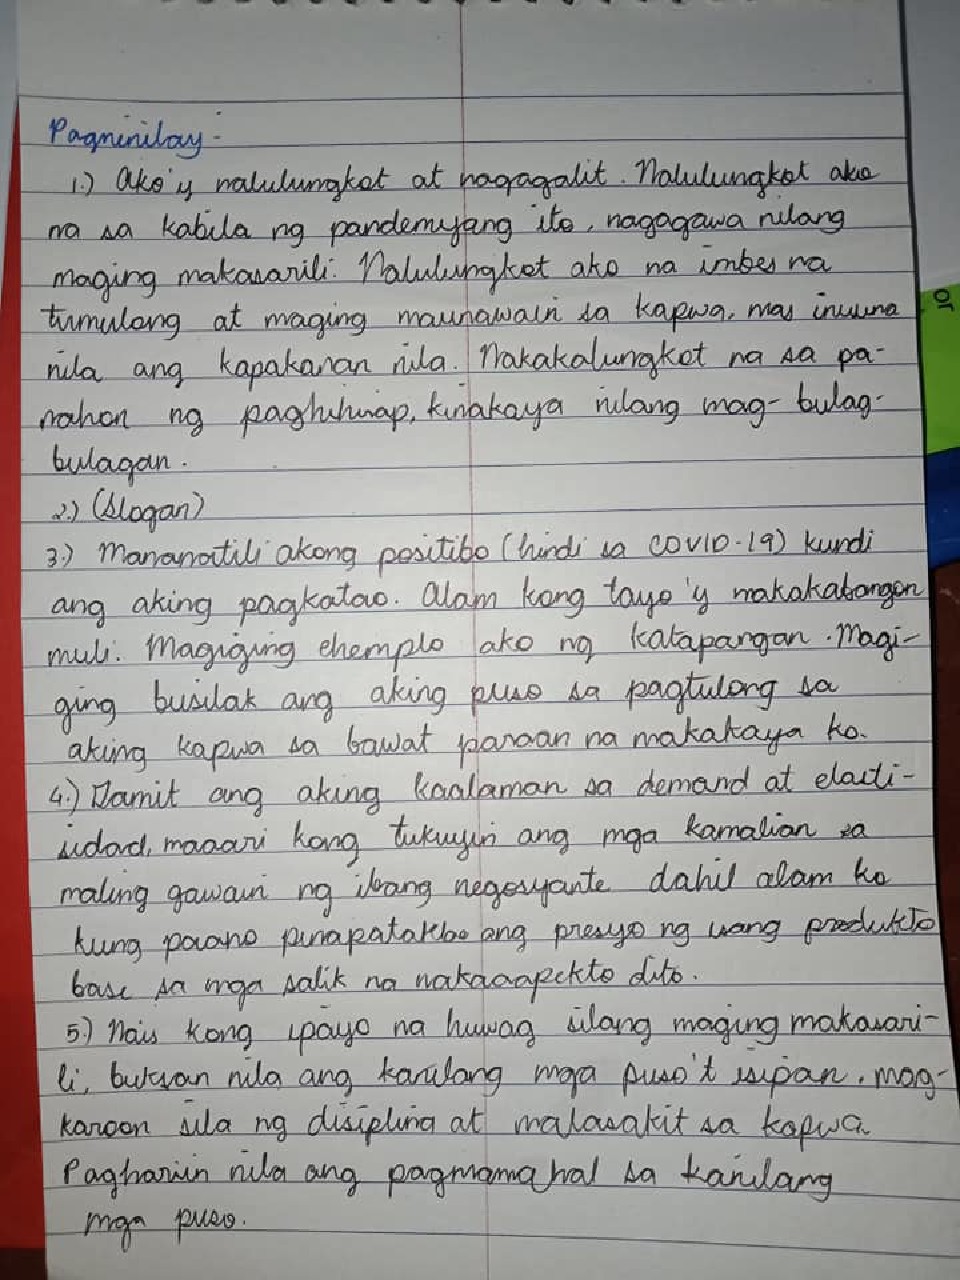 Pagninilay -
1.) Ako'y nalulungkot at nagagalit. Nalulungkot ako
na sa kabila ng pandemyang ito, nagagawa nilang
maging makasarili. Nalulungkot ako na imbes na
tumulong at maging maunawain sa kapwa, mas inuuna
nila ang kapakanan nila. Nakakalungkot na sa pa-
nahon ng paghihirap, kinakaya nilang mag- bulag-
bulagan.
2.) (Slogan)
3.) Mananatili akong positibo (hindi sa COVID-19) kundi
ang aking pagkatao. Alam kong tayo'y makakabangon
muli. Magiging ehemplo ako ng katapangan. Magi-
ging busilak ang aking puso sa pagtulong sa
aking kapwa sa bawat paraan na makakaya ko.
4.) Gamit ang aking kaalaman sa demand at elasti-
sidad, maaari kong tukuyin ang mga kamalian sa
maling gawain ng ibang negosyante dahil alam ko
kung paano pinapatakbo ang presyo ng isang produkto
base sa mga salik na nakaaapekto dito.
5.) Nais kong ipayo na huwag silang maging makasari-
li, buksan nila ang kanilang mga puso't isipan, mag-
karoon sila ng disiplina at malasakit sa kapwa.
Paghariin nila ang pagmamahal sa kanilang
mga puso.
or